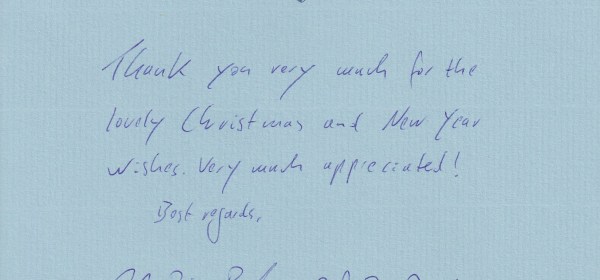 Thank you very much for the
lovely Christmas and New Year
wishes. Very much appreciated!
Best regards,